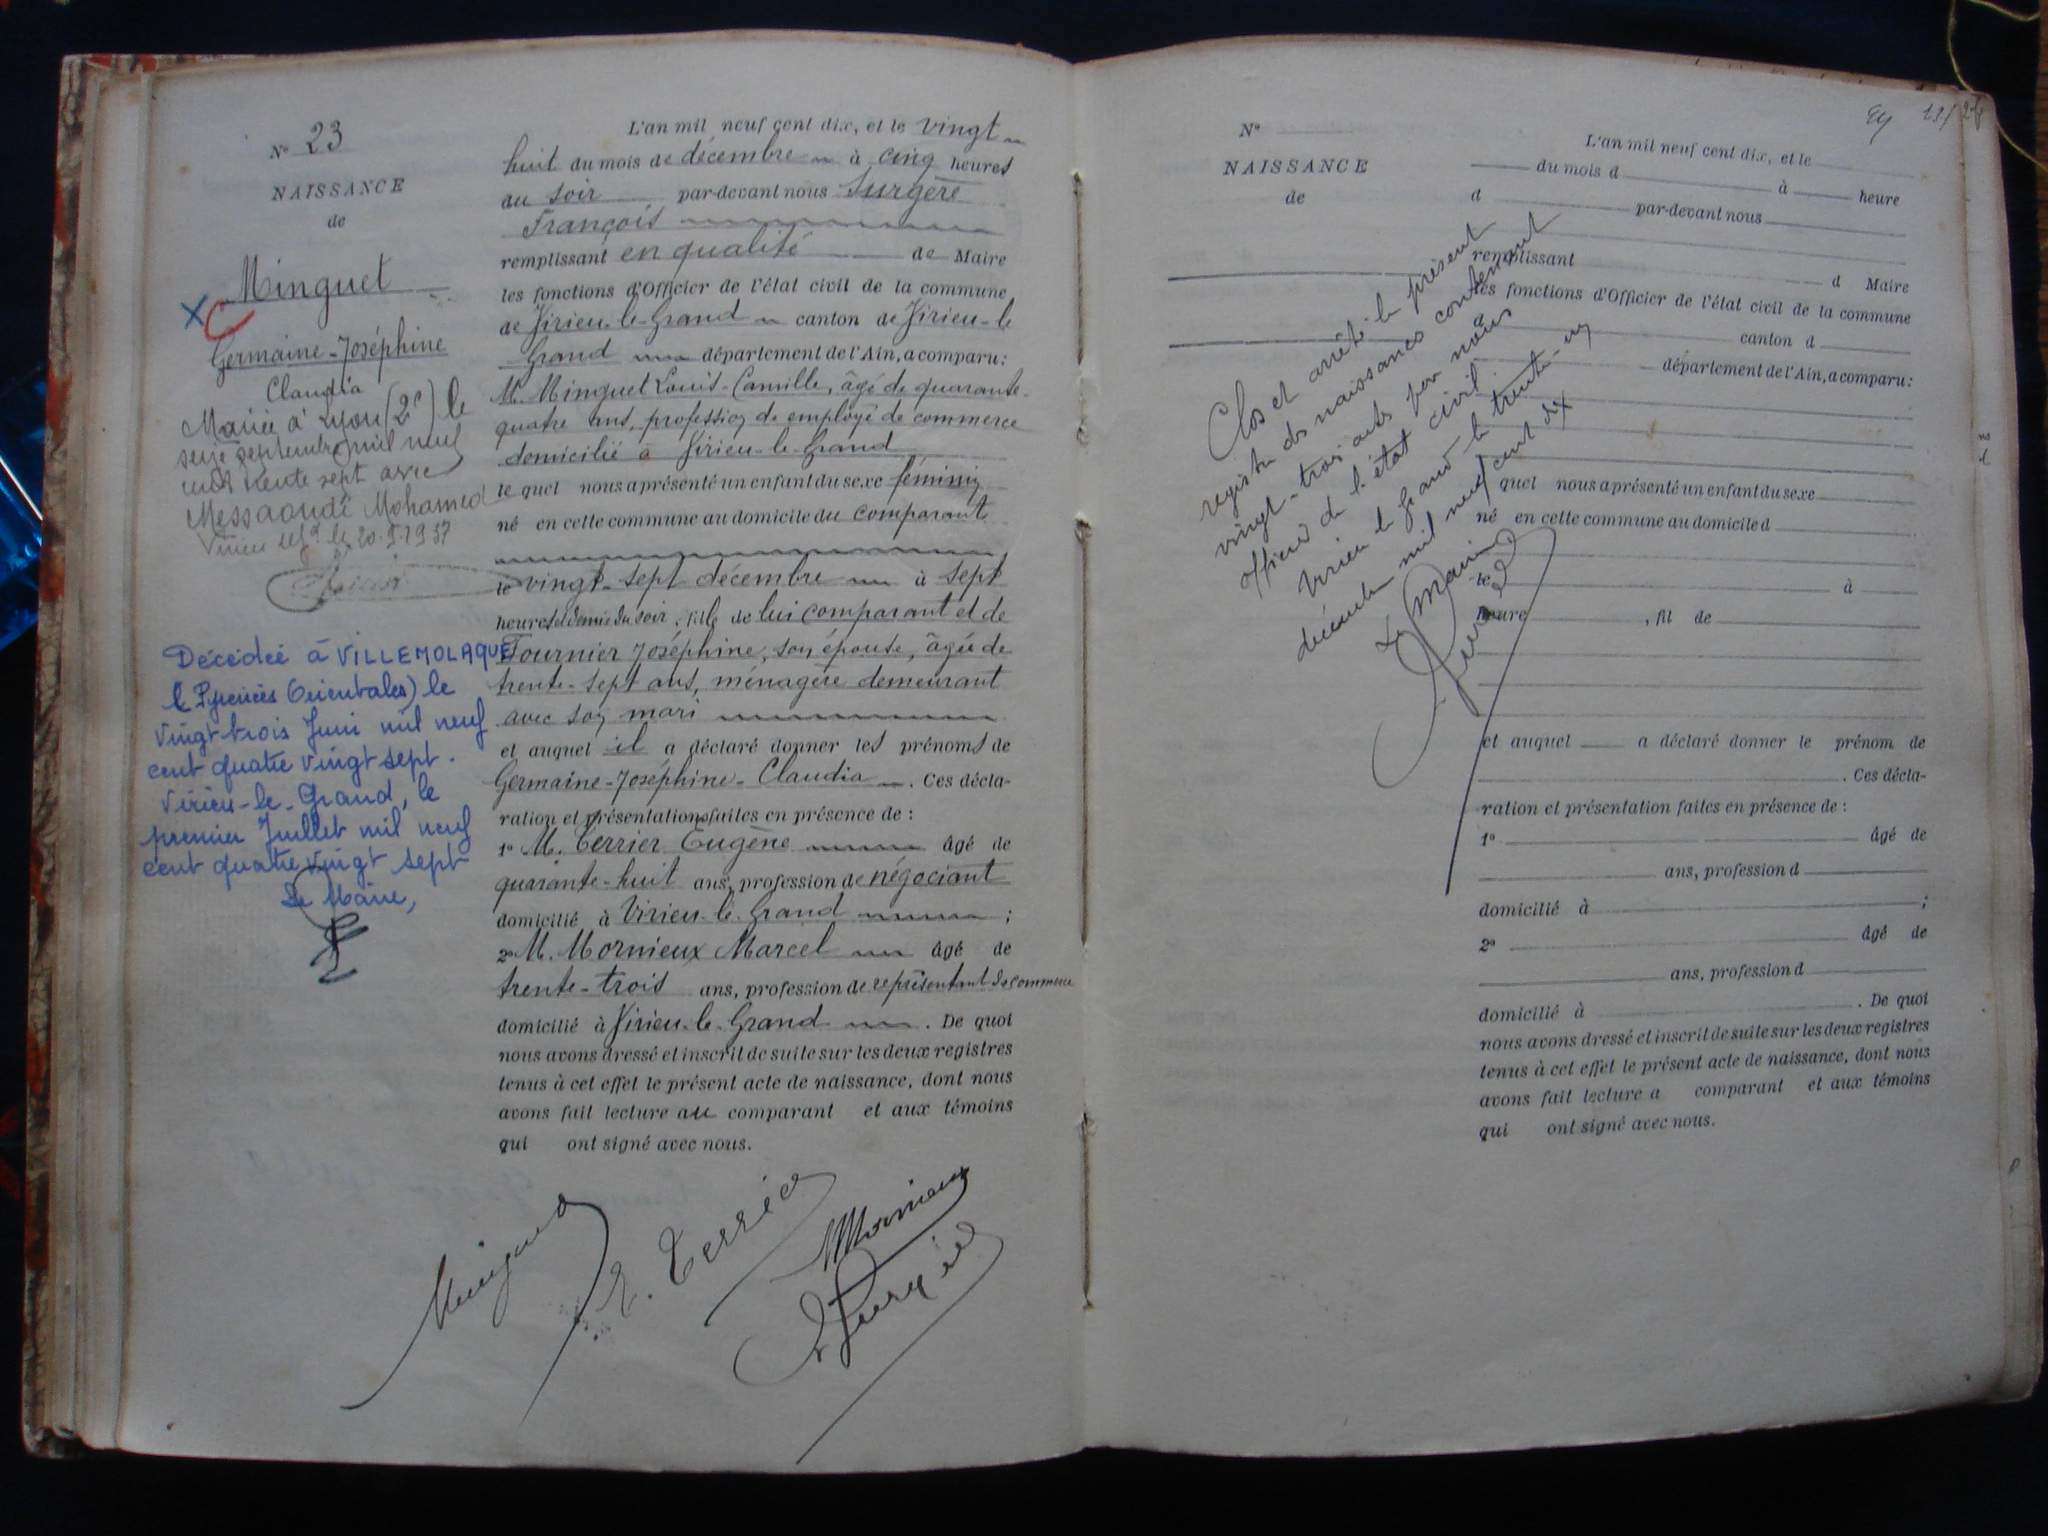 N° 23
NAISSANCE
de
Minguet
Germaine-Joséphine
Claudia
Mariée à Lyon (2e) le
seize septembre mil neuf
cent trente sept avec
Messaoudi Mohamed
Virieu le Gd le 20.9.1937
Décédée à VILLEMOLAQUE
(Pyrénées Orientales) le
vingt trois Juin mil neuf
cent quatre vingt sept.
Virieu-le-Grand, le
premier Juillet mil neuf
cent quatre vingt sept
Le Maire,
L'an mil neuf cent dix, et le vingt
huit du mois de décembre à cinq heures
du soir par-devant nous Surgère
François
remplissant en qualité de Maire
les fonctions d'Officier de l'état civil de la commune
de Virieu-le-Grand canton de Virieu-le
Grand département de l'Ain, a comparu:
M. Minguet Louis-Camille, âgé de quarante-
quatre ans, profession de employé de commerce
domicilié à Virieu-le-Grand
le quel nous a présenté un enfant du sexe féminin
né en cette commune au domicile du comparant
le vingt-sept décembre à sept
heures et demie du soir, fille de lui comparant et de
Fournier Joséphine, son épouse, âgée de
trente-sept ans, ménagère demeurant
avec son mari
et auquel il a déclaré donner les prénoms de
Germaine-Joséphine-Claudia. Ces décla-
ration et présentation faites en présence de:
1° M. Terrier Eugène âgé de
quarante-huit ans, profession de négociant
domicilié à Virieu-le-Grand ;
2° M. Mornieux Marcel âgé de
trente-trois ans, profession de représentant de commerce
domicilié à Virieu-le-Grand. De quoi
nous avons dressé et inscrit de suite sur les deux registres
tenus à cet effet le présent acte de naissance, dont nous
avons fait lecture au comparant et aux témoins
qui ont signé avec nous.
Minguet
E. Terrier
M Mornieux
Surgère
N°
NAISSANCE
de
L'an mil neuf cent dix, et le
du mois d à heure
d par-devant nous
remplissant
d Maire
les fonctions d'Officier de l'état civil de la commune
d canton d
département de l'Ain, a comparu:
quel nous a présenté un enfant du sexe
né en cette commune au domicile d
le à
heure , fil de
et auquel a déclaré donner le prénom de
. Ces décla-
ration et présentation faites en présence de :
1° âgé de
ans, profession d
domicilié à ;
2° âgé de
ans, profession d
domicilié à . De quoi
nous avons dressé et inscrit de suite sur les deux registres
tenus à cet effet le présent acte de naissance, dont nous
avons fait lecture a comparant et aux témoins
qui ont signé avec nous.
Clos et arrêté le présent
registre des naissances contenant
vingt-trois actes par nous
officier de l'état civil.
Virieu le Grand le trente-un
décembre mil neuf cent dix
Le Maire
Surgère